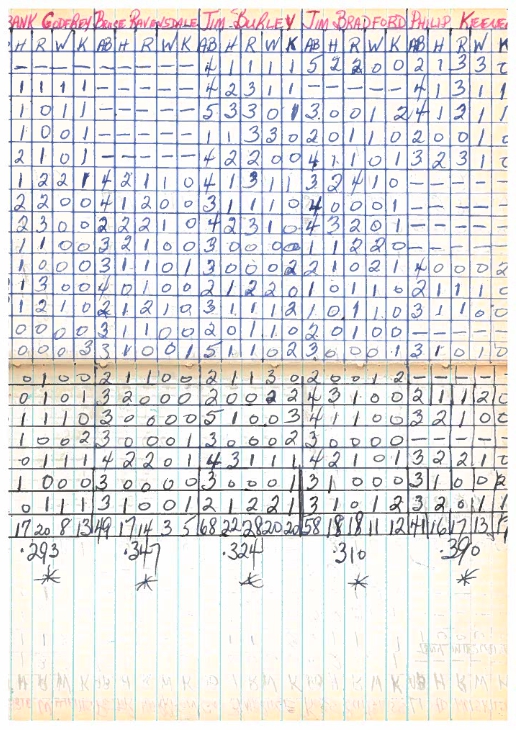 GODFREY RAVENSDALE JIM JIM BRADFORD PHILIP
H R W K AB H R W K AB H R W K AB H R W K AB H R W K
- - - - - - - - - 4 1 1 1 1 5 2 2 0 0 2 1 3 3
1 1 1 1 - - - - - 4 2 3 1 1 - - - - - 4 1 3 1 1
1 0 1 1 - - - - - 5 3 3 0 1 3 0 0 1 2 4 1 2 1 1
1 0 0 1 - - - - - 1 1 3 3 0 2 0 1 1 0 2 0 0 1 0
2 1 0 1 - - - - - 4 2 2 0 0 4 1 1 0 1 3 2 3 1
1 2 2 1 4 2 1 1 0 4 1 3 1 1 3 2 4 1 0 - - - -
2 2 0 0 4 1 2 0 0 3 1 1 1 0 4 0 0 0 1 - - - -
2 3 0 0 2 2 2 1 0 4 2 3 1 0 4 3 2 0 1 - - - -
1 1 0 0 3 2 1 0 0 3 0 0 0 0 1 1 2 2 0 - - - -
1 0 0 0 3 1 1 0 1 3 0 0 0 2 2 1 0 2 1 4 0 0 0 2
1 3 0 0 4 0 1 0 0 2 1 2 2 0 1 0 1 1 0 2 1 1 1 0
1 2 1 0 2 1 2 1 0 3 1 1 1 2 1 0 1 1 0 3 1 1 0 0
0 0 0 0 3 1 1 0 0 2 0 1 1 0 2 0 1 0 0 - - - -
0 0 0 3 3 1 0 0 1 5 1 1 0 2 3 0 0 0 1 3 1 0 1 0
0 1 0 0 2 1 1 0 0 2 1 1 3 0 2 0 0 1 2 - - - -
0 1 0 1 3 2 0 0 0 2 0 0 2 2 4 3 1 0 0 2 1 1 2 0
1 1 1 0 3 0 0 0 0 5 1 0 0 3 4 1 1 0 0 3 2 1 0 0
1 0 0 2 3 0 0 0 1 3 0 0 0 2 3 0 0 0 0 - - - -
0 1 1 1 4 2 2 0 1 4 3 1 1 1 4 2 1 0 1 3 2 2 1
1 0 0 0 3 0 0 0 0 3 0 0 0 1 3 1 0 0 0 3 1 0 0 2
0 1 1 1 3 1 0 0 1 2 1 2 2 1 3 1 0 1 2 3 2 0 1 1
17 20 8 13 49 17 14 3 5 68 22 28 20 20 58 18 18 11 12 41 16 17 13
.293 .347 .324 .310 .390
* * * * *